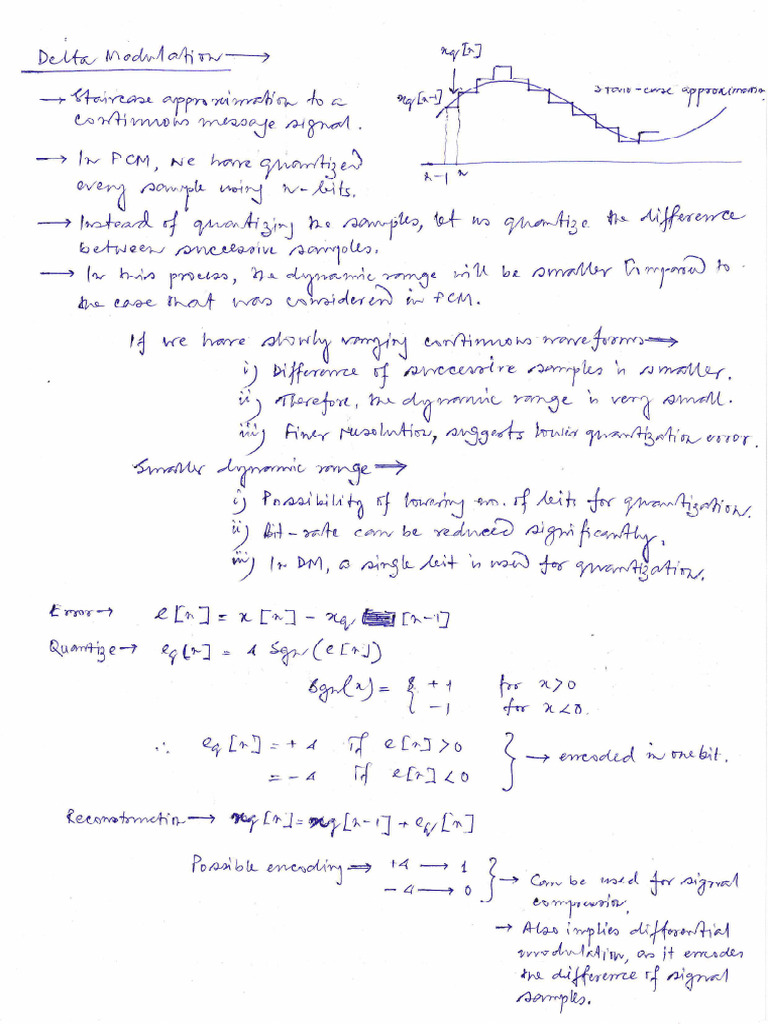 Delta Modulation →
xq[n]
xq[n-1]
stair-case approximation
n-1 n
→ Staircase approximation to a
continuous message signal.
→ In PCM, we have quantized
every sample using n-bits.
→ Instead of quantizing the samples, let us quantize the difference
between successive samples.
→ In this process, the dynamic range will be smaller compared to
the case that was considered in PCM.
If we have slowly varying continuous waveforms →
i) Difference of successive samples is smaller.
ii) Therefore, the dynamic range is very small.
iii) Finer resolution, suggests lower quantization error.
Smaller dynamic range →
i) Possibility of lowering no. of bits for quantization.
ii) Bit-rate can be reduced significantly.
iii) In DM, a single bit is used for quantization.
Error → e[n] = x[n] - xq [n-1]
Quantize → eq[n] = Δ Sgn(e[n])
Sgn(x) = { +1 for x>0
-1 for x<0.
∴ eq[n] = +Δ If e[n] > 0
= -Δ If e[n] < 0 } → encoded in one bit.
Reconstruction → xq[n] = xq[n-1] + eq[n]
Possible encoding → +Δ → 1
-Δ → 0 } → Can be used for signal
compression.
→ Also implies differential
modulation, as it encodes
the difference of signal
samples.